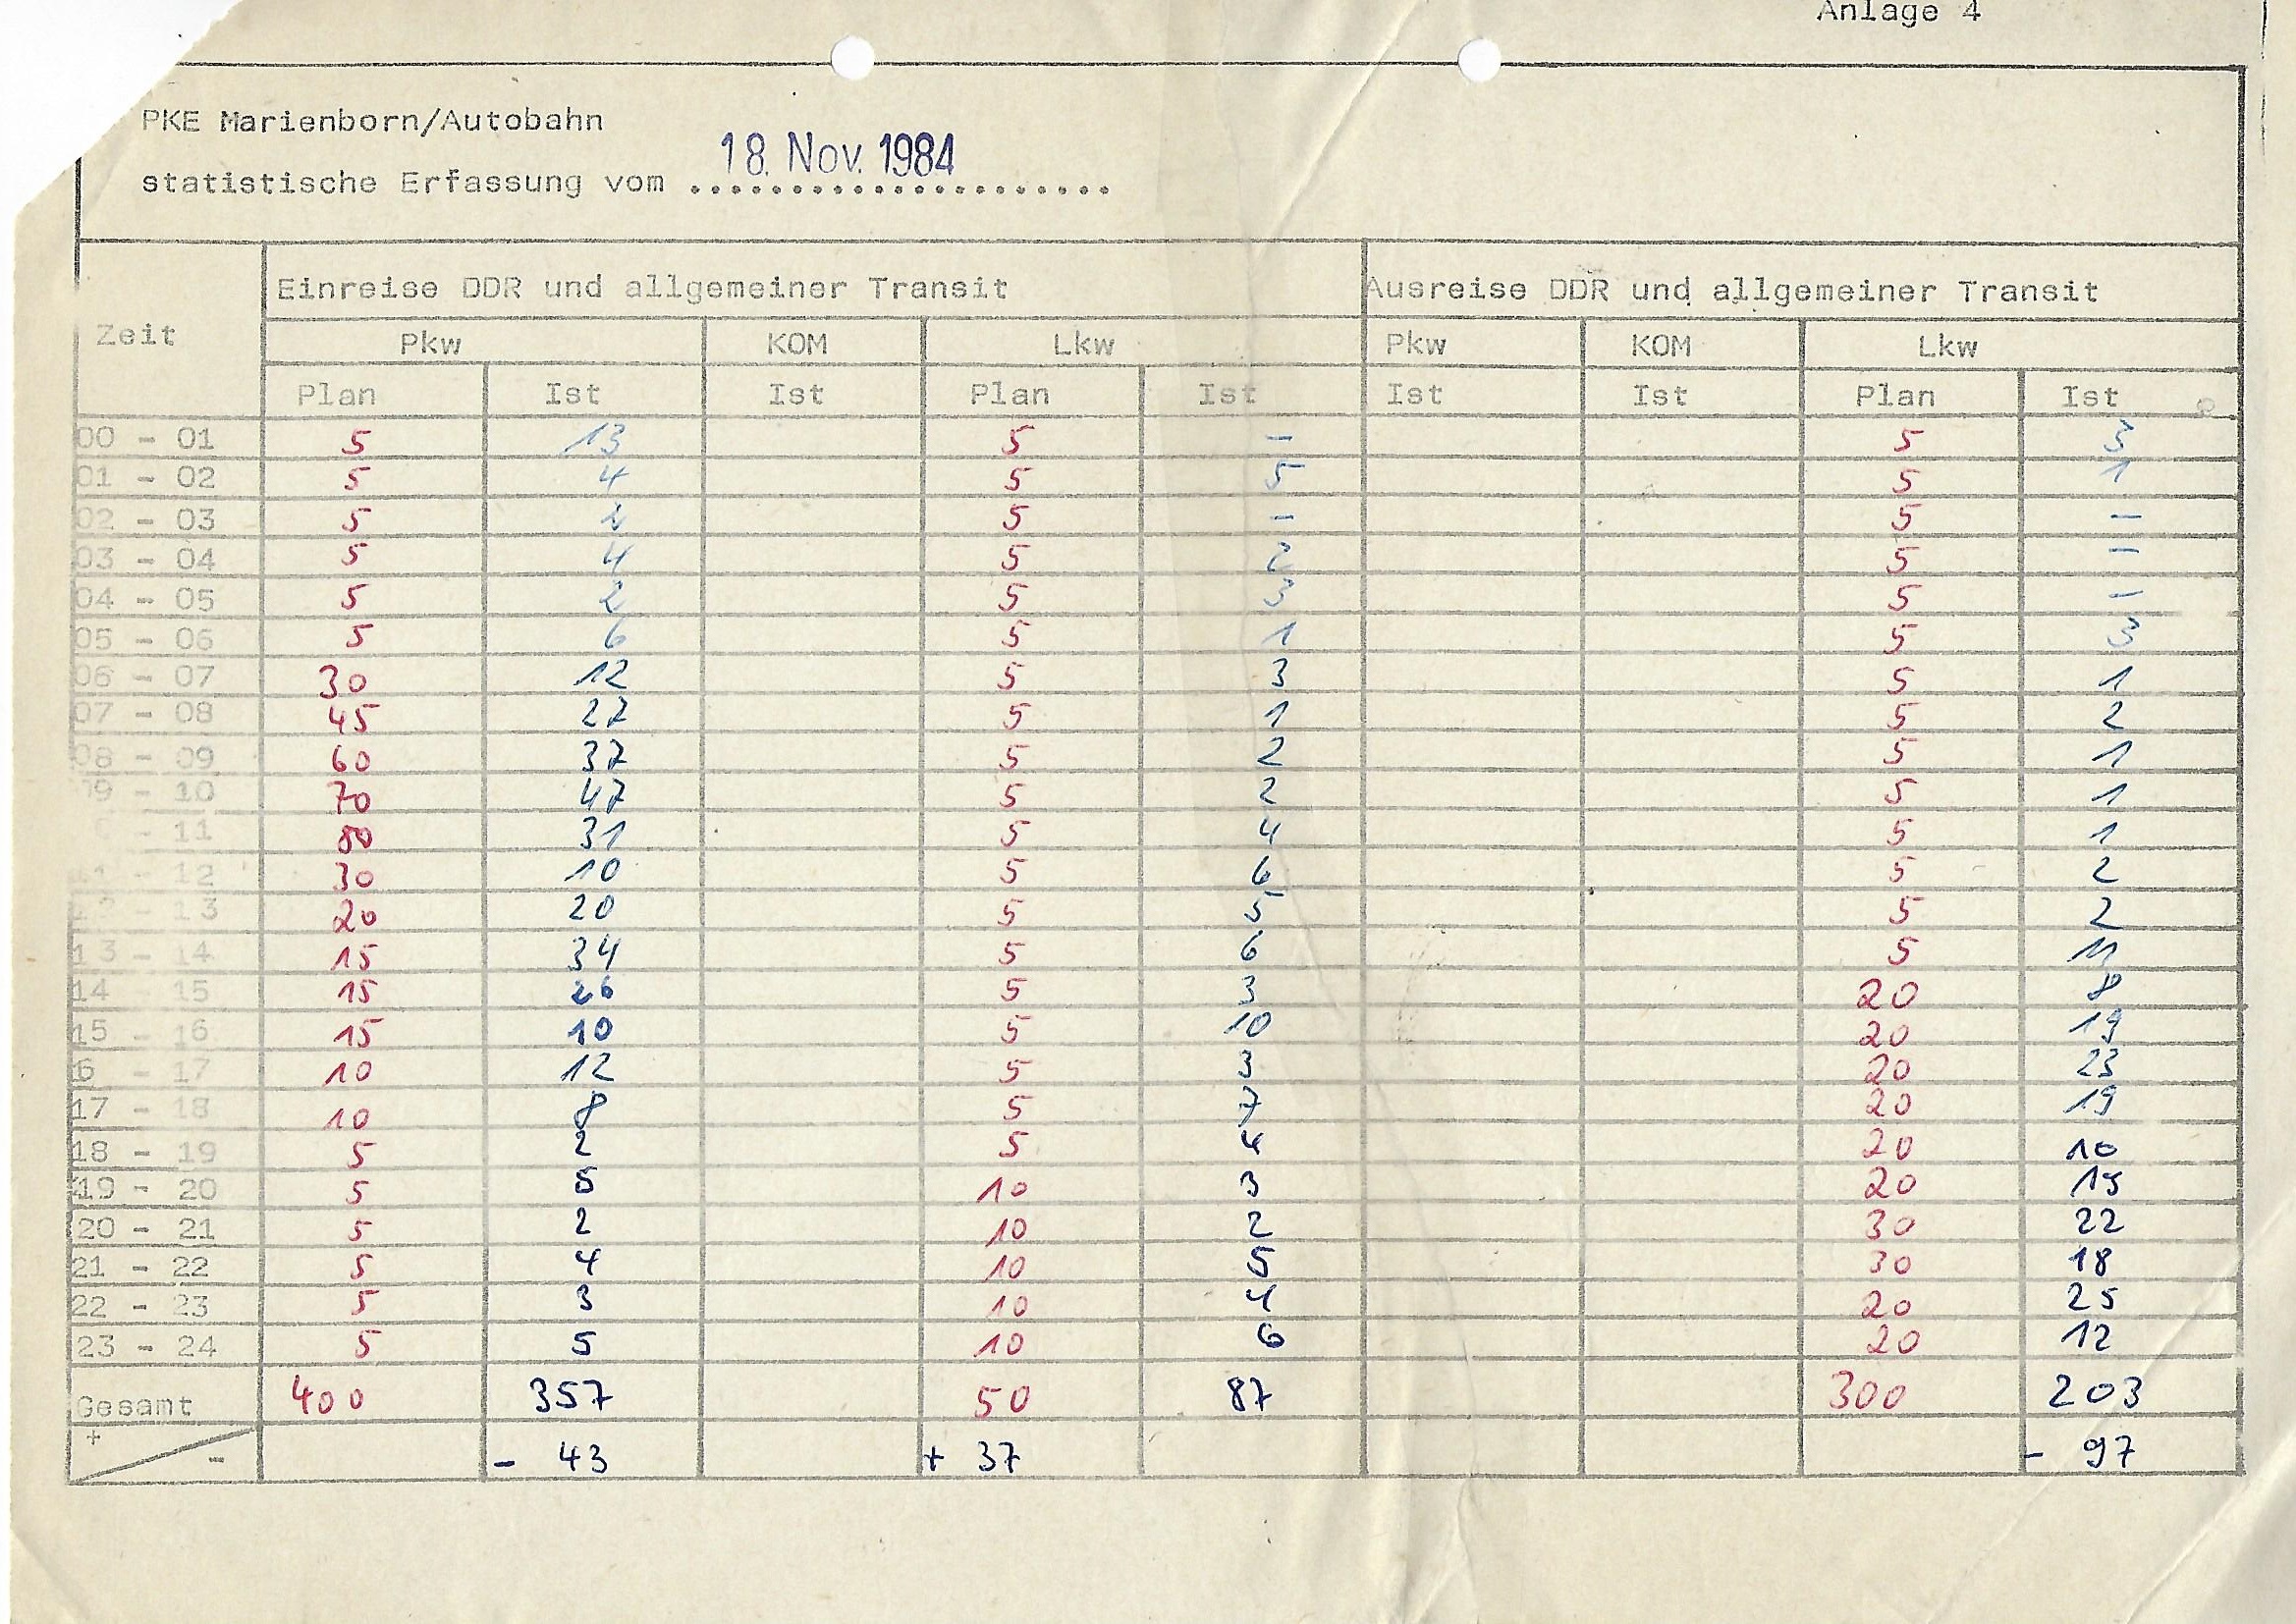 Anlage 4
PKE Marienborn/Autobahn
statistische Erfassung vom 18. Nov. 1984
Zeit Einreise DDR und allgemeiner Transit Ausreise DDR und allgemeiner Transit
Pkw KOM Lkw Pkw KOM Lkw
Plan Ist Ist Plan Ist Ist Ist Plan Ist
00 - 01 5 13 5 - 5 3
01 - 02 5 4 5 5 5 1
02 - 03 5 2 5 - 5 -
03 - 04 5 4 5 2 5 -
04 - 05 5 2 5 3 5 -
05 - 06 5 6 5 1 5 3
06 - 07 30 12 5 3 5 1
07 - 08 45 27 5 1 5 2
08 - 09 60 37 5 2 5 1
09 - 10 70 47 5 2 5 1
- 11 80 31 5 4 5 1
11 - 12 30 10 5 6 5 2
12 - 13 20 20 5 5 5 2
13 - 14 15 34 5 6 5 11
14 15 15 26 5 3 20 8
15 - 16 15 10 5 10 20 19
6 - 17 10 12 5 3 20 23
17 - 18 10 8 5 7 20 19
18 - 19 5 2 5 4 20 10
19 - 20 5 5 10 3 20 19
20 - 21 5 2 10 2 30 22
21 - 22 5 4 10 5 30 18
22 - 23 5 3 10 4 20 25
23 - 24 5 5 10 6 20 12
Gesamt 400 357 50 87 300 203
+ - - 43 + 37 - 97